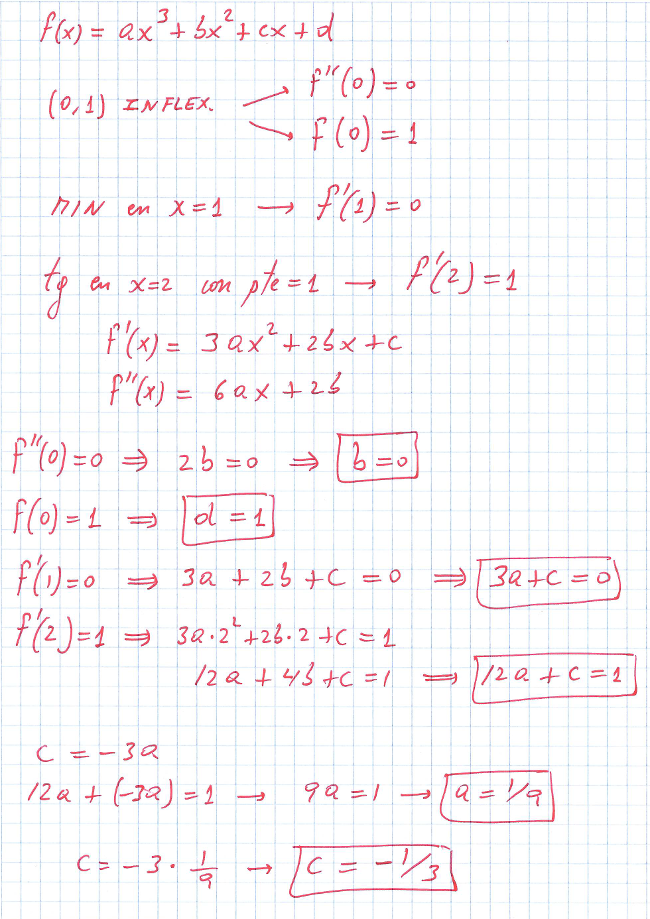 f(x) = ax³ + bx² + cx + d
f''(0) = 0
(0,1) INFLEX.
f(0) = 1
MIN en x=1 → f'(1) = 0
tg en x=2 con pte=1 → f'(2) = 1
f'(x) = 3ax² + 2bx + c
f''(x) = 6ax + 2b
f''(0)=0 ⇒ 2b=0 ⇒ b=0
f(0)=1 ⇒ d=1
f'(1)=0 ⇒ 3a + 2b + c = 0 ⇒ 3a+c=0
f'(2)=1 ⇒ 3a·2²+2b·2+c=1
12a + 4b + c = 1 ⇒ 12a + c = 1
c = -3a
12a + (-3a) = 1 → 9a=1 → a = 1/9
c = -3 · 1/9 → c = -1/3